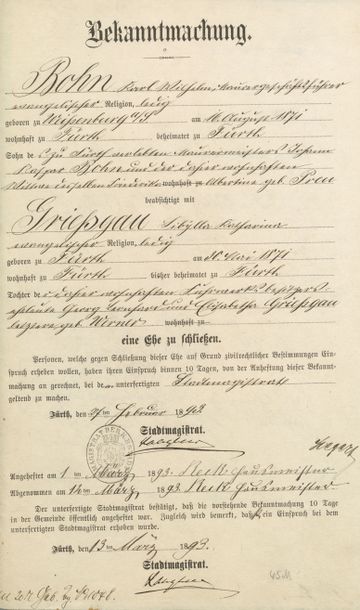 Bekanntmachung.
Bohn Karl Wilhelm, Maurergeschäftsführer
evangelischer Religion, ledig
geboren zu Weissenburg a/S am 16. August 1871
wohnhaft zu Fürth beheimatet zu Fürth
Sohn des zu Fürth verlebten Maurermeisters Johann
Kaspar Bohn und der daher wohnhaften
Wittwe desselben Friederika wohnhaft zu Albertine geb. Preu
beabsichtigt mit
Grießgau Sibylla Katharina
evangelischer Religion, ledig
geboren zu Fürth am Mai 1871
wohnhaft zu Fürth bisher beheimatet zu Fürth
Tochter der daher wohnhaften
eheleute Georg Leonhard und Elisabetha Grießgau
letztere geb. Werner wohnhaft zu
eine Ehe zu schließen.
Personen, welche gegen Schließung dieser Ehe auf Grund zivilrechtlicher Bestimmungen Ein-
spruch erheben wollen, haben ihren Einspruch binnen 10 Tagen, von der Anheftung dieser Bekannt-
machung an gerechnet, bei dem unterfertigten Stadtmagistrat
geltend zu machen.
Fürth, den 27. Februar 1893
Stadtmagistrat.
Angeheftet am 1 ten März 1893. Hausmeister
Abgenommen am 12 ten März 1893 Hausmeister
Der unterfertigte Stadtmagistrat bestätigt, daß die vorstehende Bekanntmachung 10 Tage
in der Gemeinde öffentlich angeheftet war. Zugleich wird bemerkt, daß ein Einspruch bei dem
unterfertigten Stadtmagistrat erhoben wurde.
Fürth, 13 März 1893.
Stadtmagistrat.